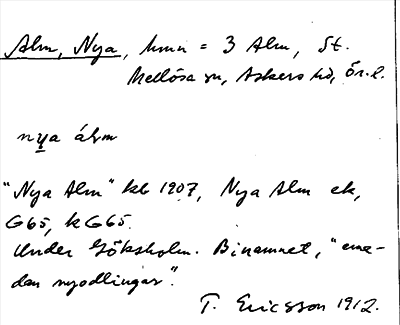 Alm, Nya, hmn = 3 Alm, St.
Mellösa sn, Askers hd, Ör. l.
nya álm
"Nya Alm" kb 1907, Nya Alm ek,
G65, k G65.
Under Göksholm. Binamnet, "eme-
dan nyodlingar".
T. Ericsson 1912.